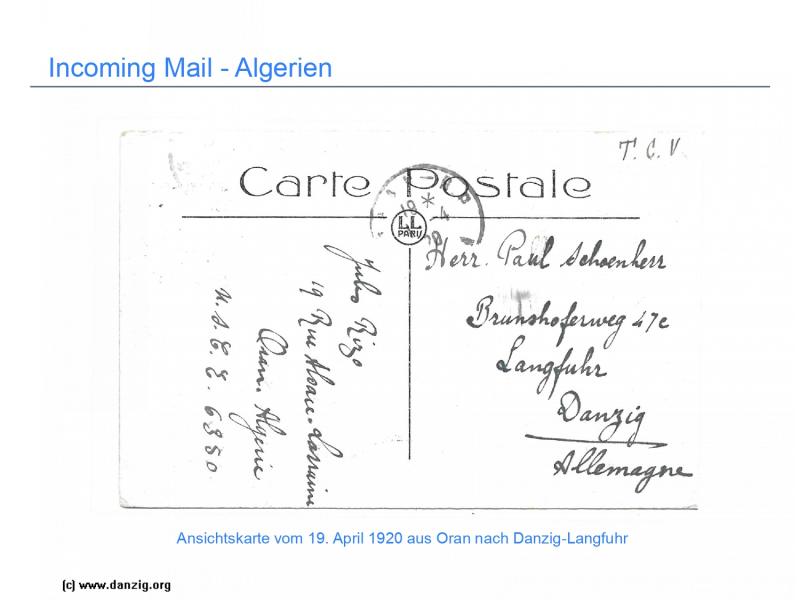 Incoming Mail - Algerien
T. C. V
Carte Postale
LL
PARIS
Herr. Paul Schoenherr
Brunshoferweg 47c
Langfuhr
Danzig
Allemagne
Jules Rizo
19 Rue Alsace-Lorraine
Oran. Algerie
6380
Ansichtskarte vom 19. April 1920 aus Oran nach Danzig-Langfuhr
(c) www.danzig.org